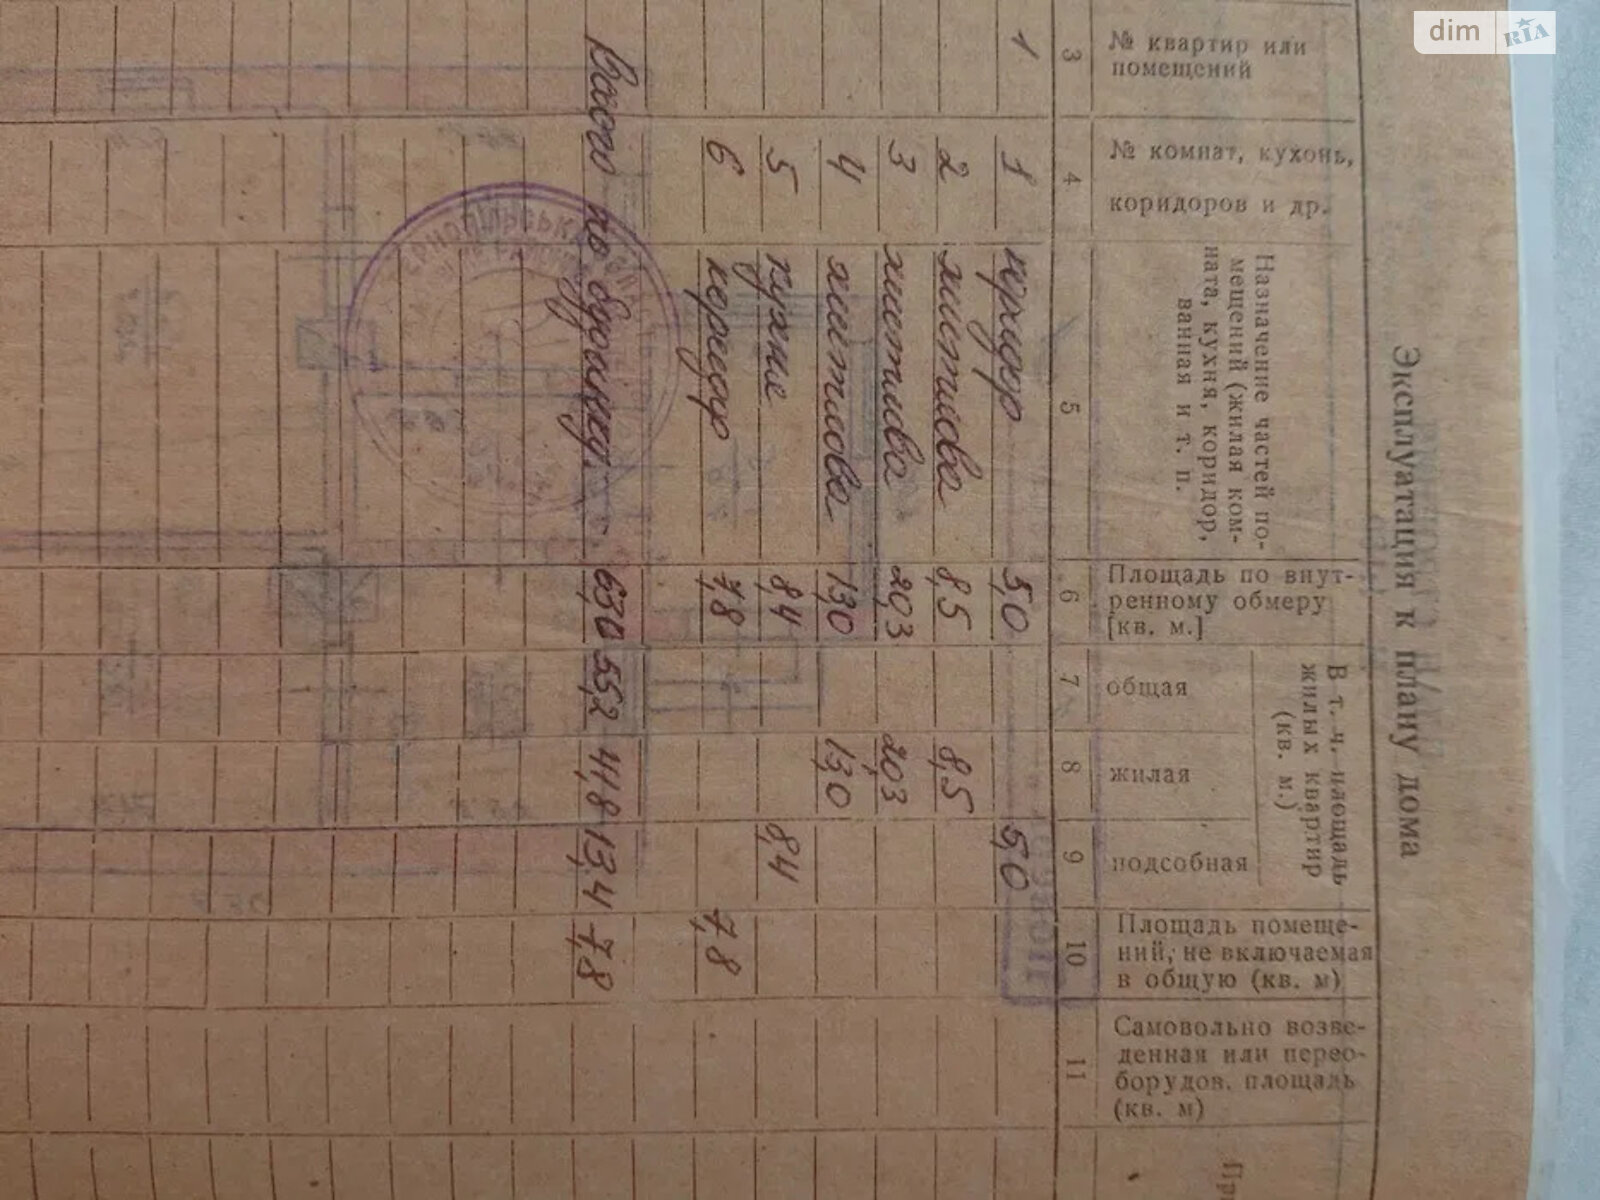 dim RIA
Эксплуатация к плану дома
№ квартир или
помещений
№ комнат, кухонь,
коридоров и др.
Назначение частей по-
мещений (жилая ком-
ната, кухня, коридор,
ванная и т. п.
Площадь по внут-
ренному обмеру
[кв. м.]
В т. ч. площадь
жилых квартир
(кв. м.)
общая
жилая
подсобная
Площадь помеще-
ний, не включаемая
в общую (кв. м)
Самовольно возве-
денная или перео-
борудов. площадь
(кв. м)
Пр
3 4 5 6 7 8 9 10 11
1 1 коридор 5,0 5,0
2 житлова 8,5 8,5
3 житлова 20,3 20,3
4 житлова 13,0 13,0
5 кухне 8,4 8,4
6 коридор 7,8 7,8
Всього по будинку. 63,0 55,2 41,8 13,4 7,8